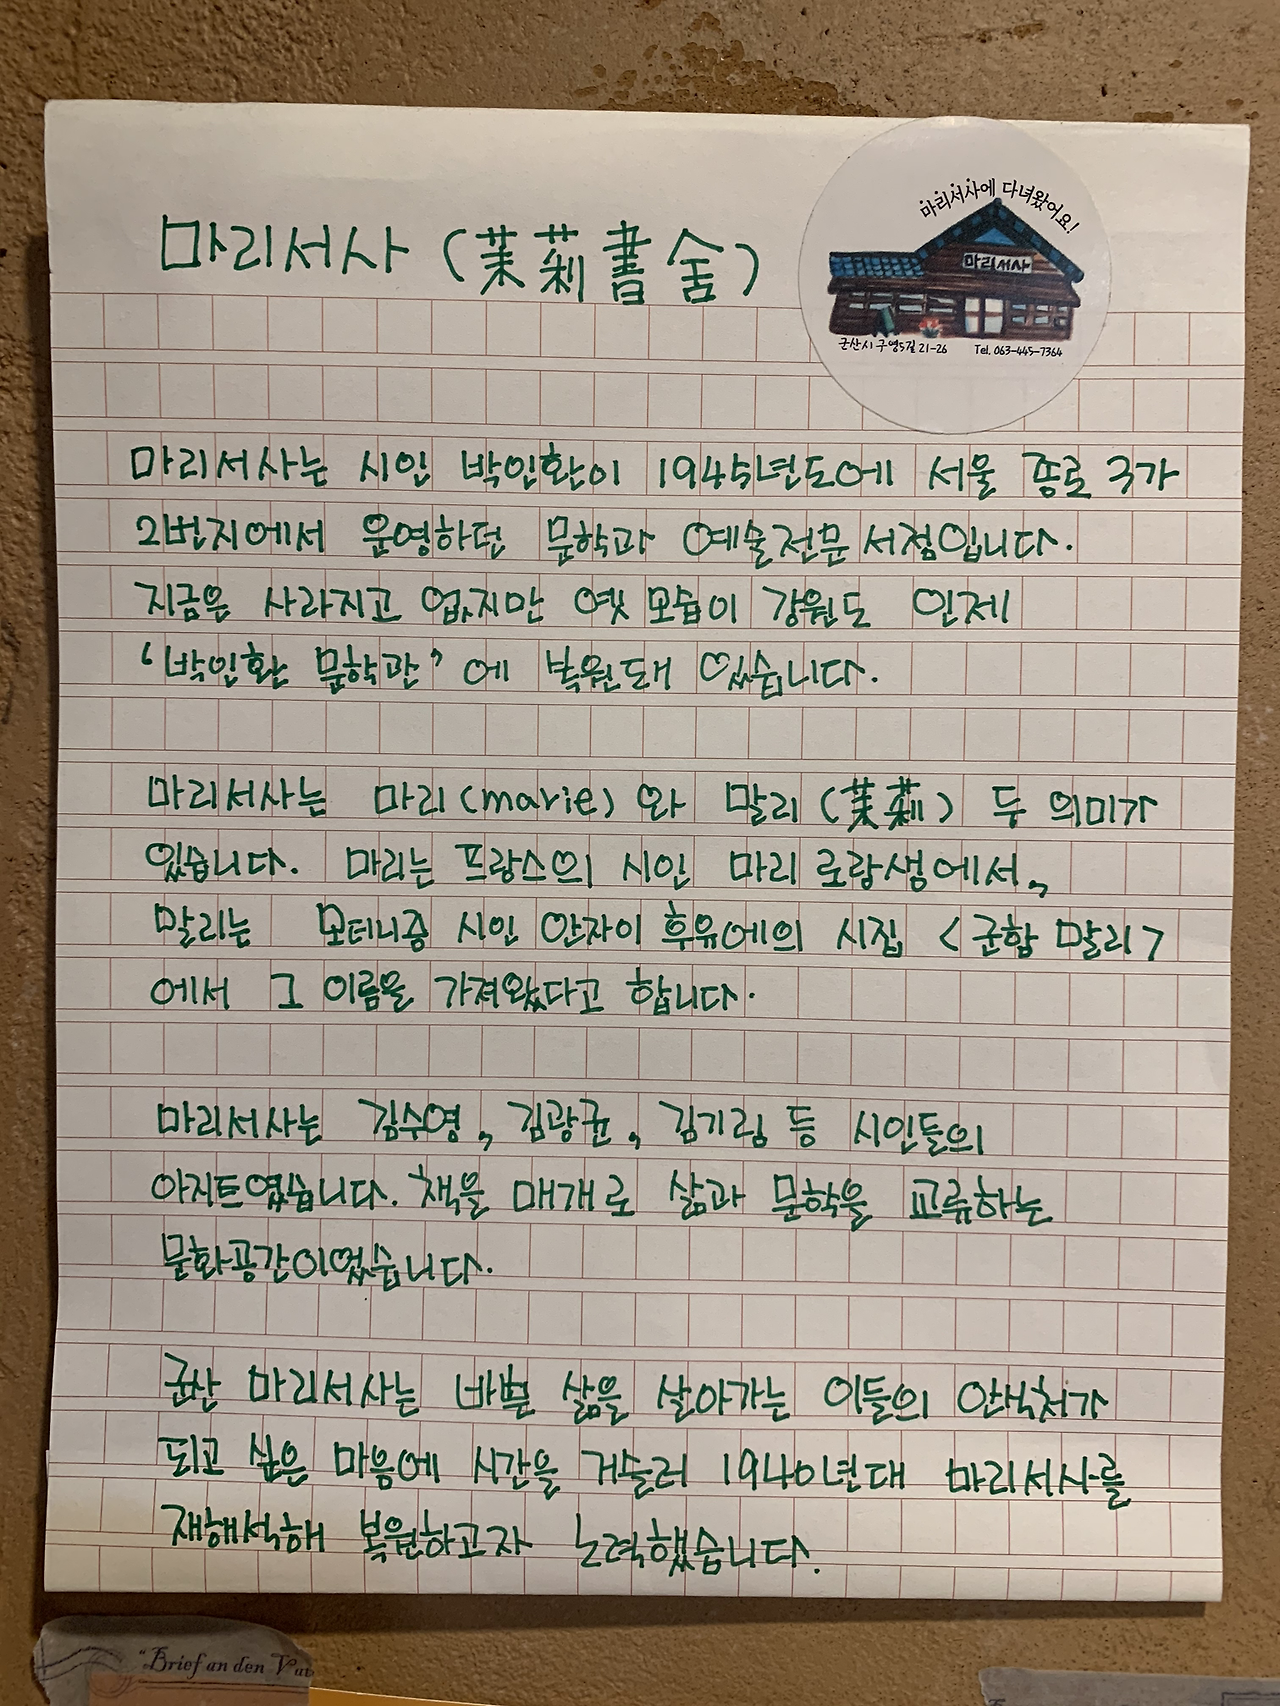 마리서사 (茉莉書舍)
마리서사에 다녀왔어요!
마리서사
군산시 구영5길 21-26 Tel. 063-445-7364
마리서사는 시인 박인환이 1945년도에 서울 종로 3가
2번지에서 운영하던 문학과 예술전문 서점입니다.
지금은 사라지고 없지만 옛 모습이 강원도 인제
'박인환 문학관'에 복원돼 있습니다.
마리서사는 마리(marie)와 말리(茉莉) 두 의미가
있습니다. 마리는 프랑스의 시인 마리 로랑생에서,
말리는 모더니즘 시인 안자이 후유에의 시집 <군함 말리>
에서 그 이름을 가져왔다고 합니다.
마리서사는 김수영, 김광균, 김기림 등 시인들의
아지트였습니다. 책을 매개로 삶과 문학을 교류하는
문화공간이었습니다.
군산 마리서사는 바쁜 삶을 살아가는 이들의 안식처가
되고 싶은 마음에 시간을 거슬러 1940년대 마리서사를
재해석해 복원하고자 노력했습니다.
"Brief an den Vat